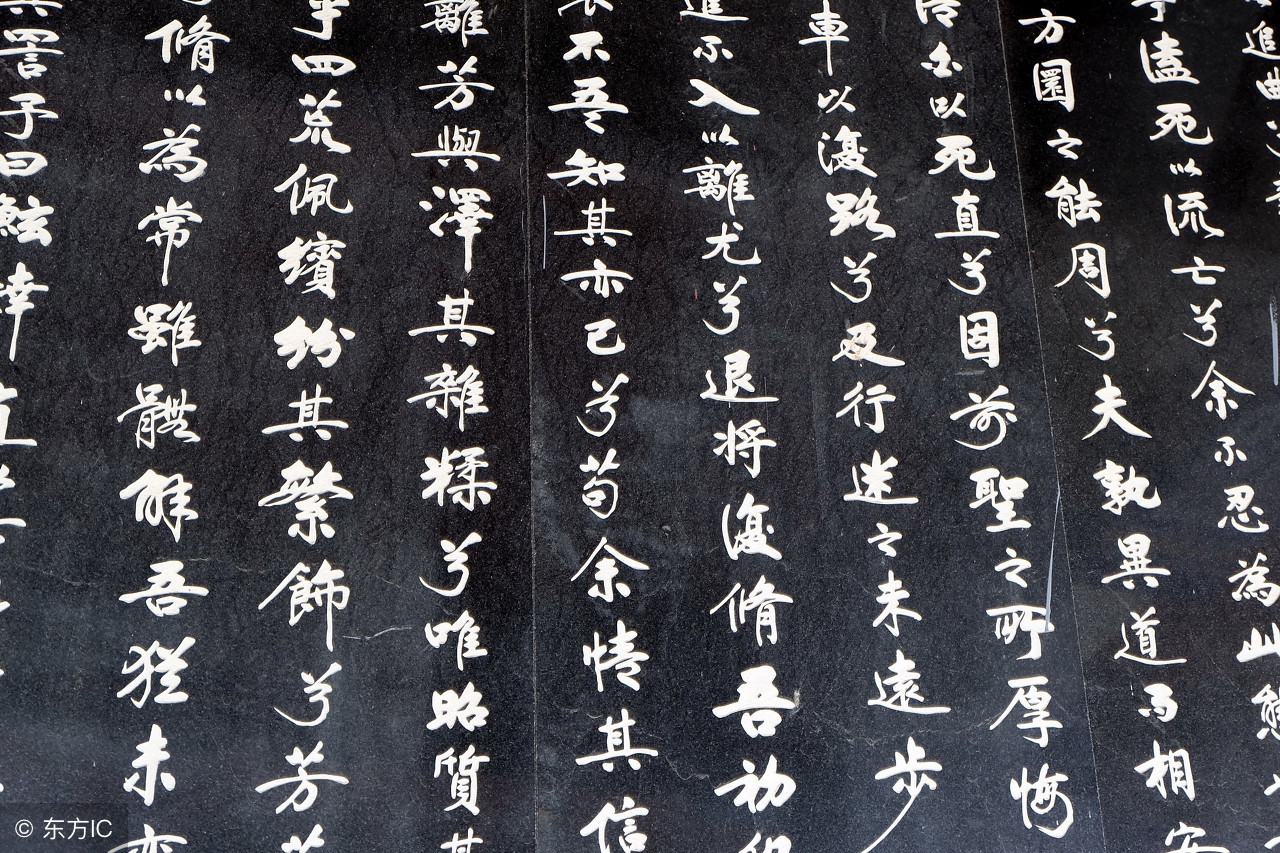 追曲
溘死以流亡兮余不忍為此
方圜之能周兮夫孰異道而相安
以死直兮固前聖之所厚悔
車以復路兮及行迷之未遠步
進不入以離尤兮退將復脩吾初
不吾知其亦已兮苟余情其信
離芳與澤其雜糅兮唯昭質其
乎四荒佩繽紛其繁飾兮芳
脩以為常雖體解吾猶未變
詈予曰鮌婞直
© 东方IC